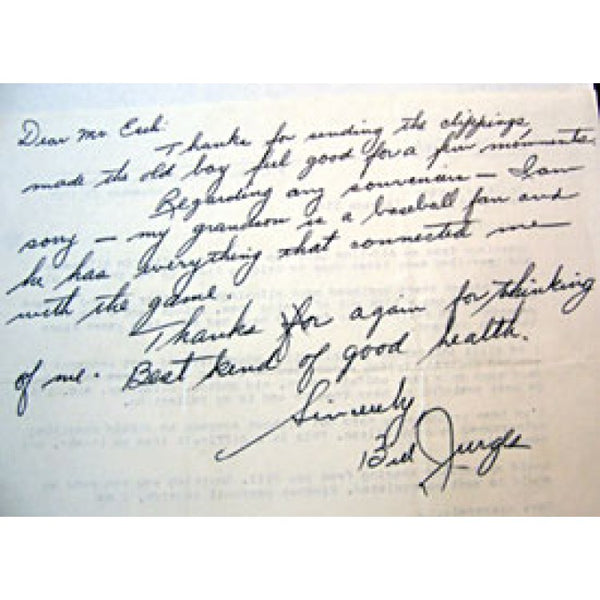 Dear Mr. Esch:
Thanks for sending the clippings,
made the old boy feel good for a few moments.
Regarding any souvenirs — I am
sorry — my grandson is a baseball fan and
he has everything that connected me
with the game.
Thanks for again for thinking
of me. Best kind of good health.
Sincerely
Bill Jurges